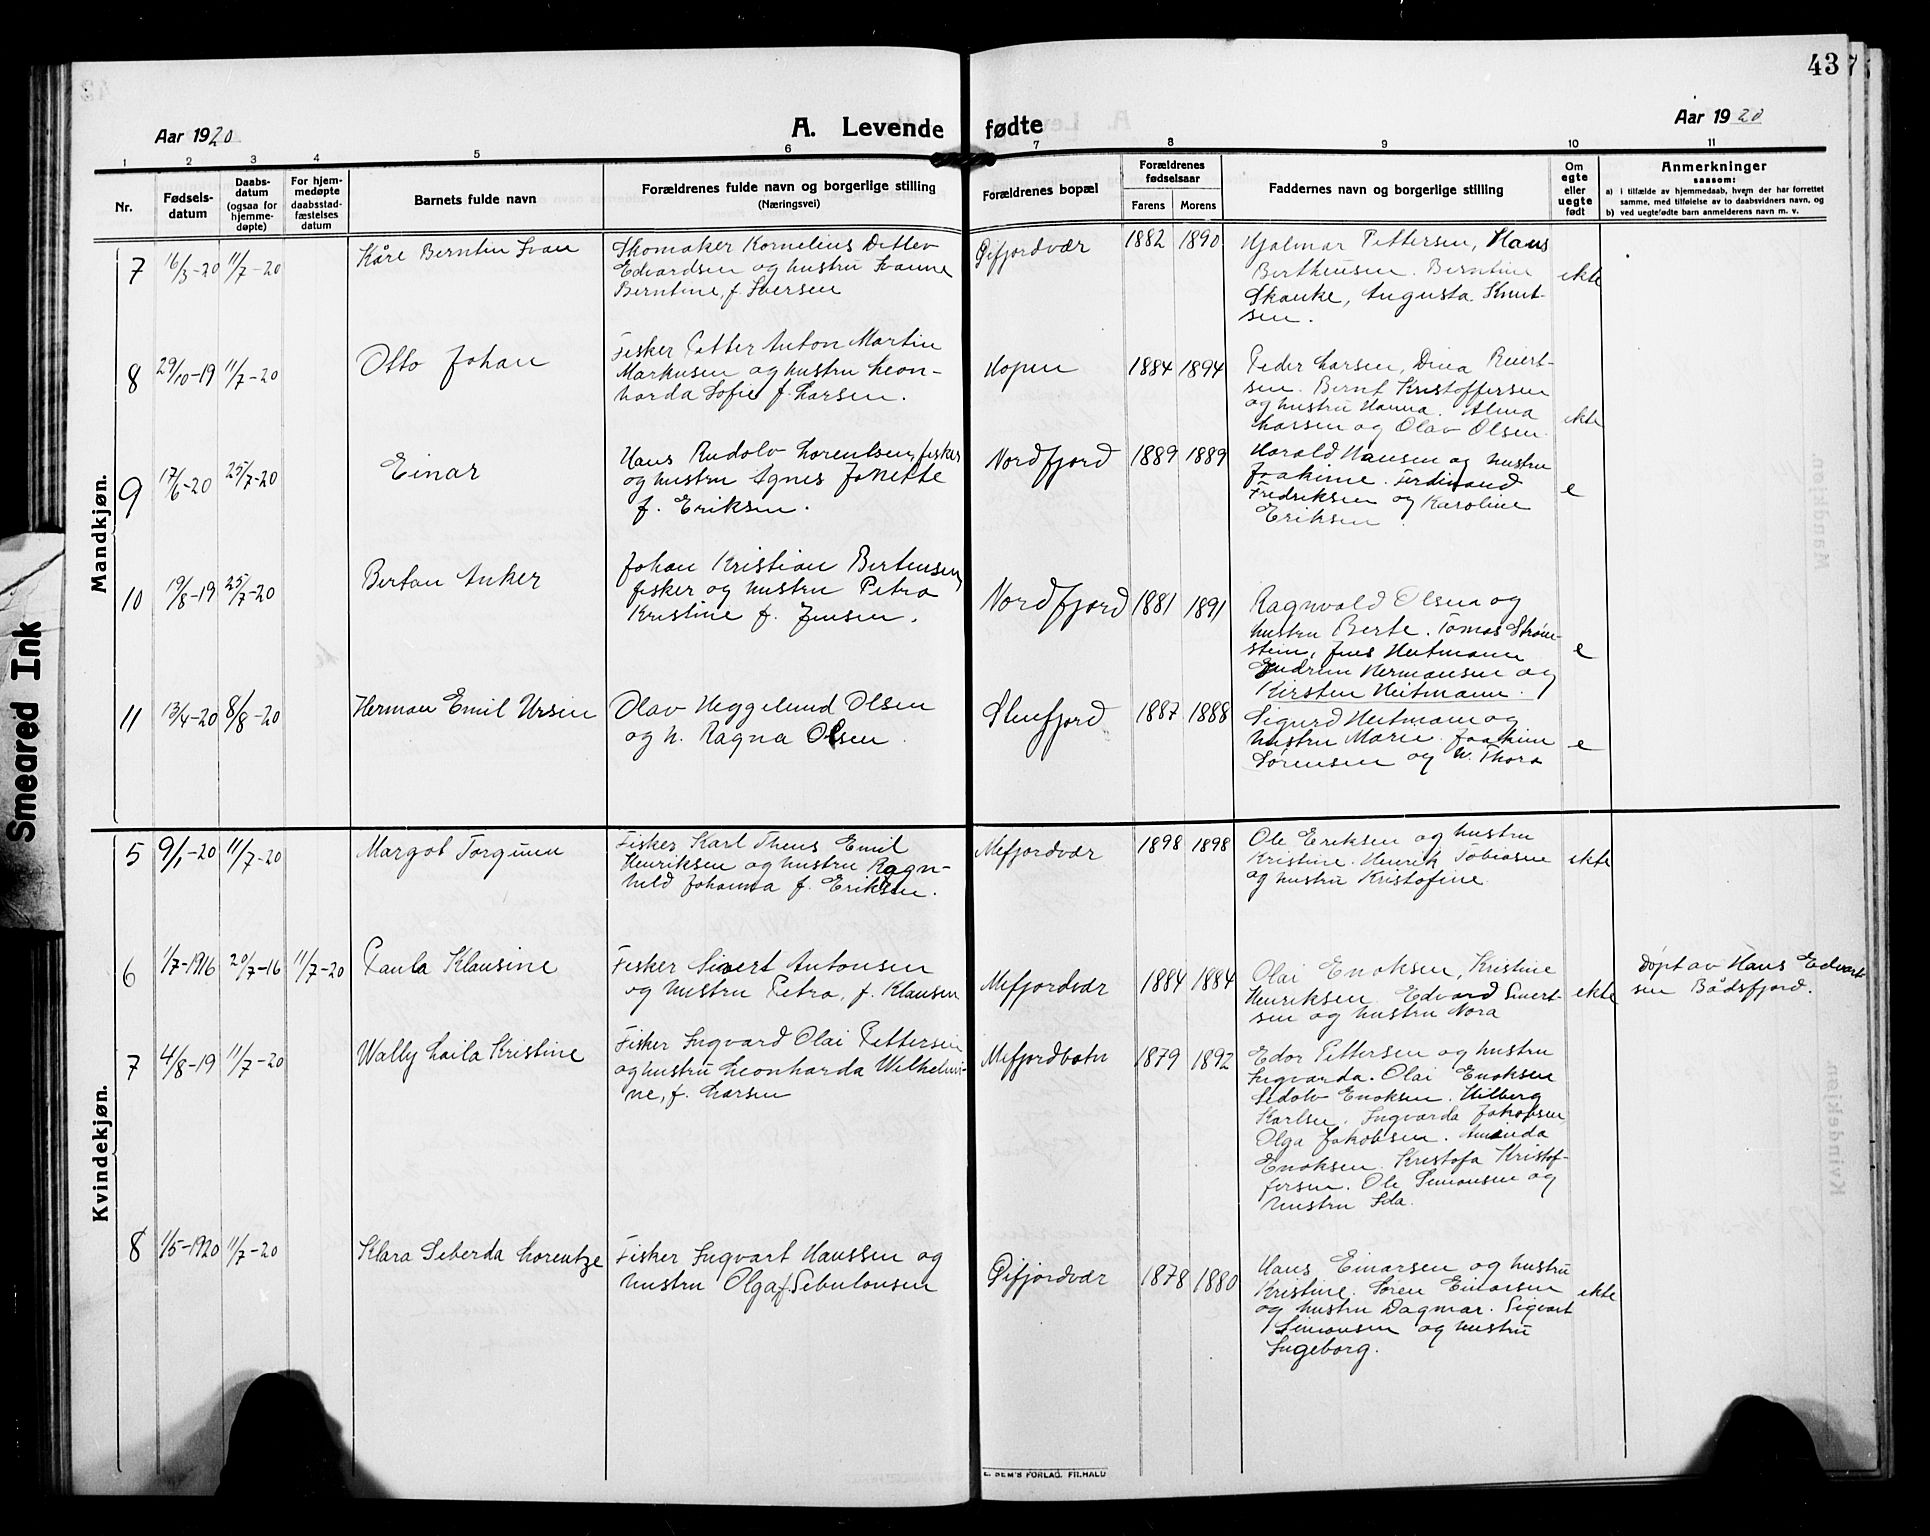 43
Aar 1920
A. Levende fødte
Aar 1920
1 2 3 4 5 6 7 8 9 10 11
Nr.
Fødsels-
datum
Daabs-
datum
(ogsaa for
hjemme-
døpte)
For hjem-
medøpte
daabsstad-
fæstelses
datum
Barnets fulde navn
Forældrenes fulde navn og borgerlige stilling
(Næringsvei)
Forældrenes bopæl
Forældrenes
fødselsaar
Farens Morens
Faddernes navn og borgerlige stilling
Om
egte
eller
uegte
født
Anmerkninger
saasom:
a) i tilfælde av hjemmedaab, hvem der har forrettet
samme, med tilføielse av to daabsvidners navn, og
b) ved uegtefødte barn anmelderens navn m. v.
Mandkjøn.
7 16/3-20 11/7-20
Kåre Berntin Ivan
Skomaker Kornelius Detlev
Edvardsen og hustru Ivanne
Berntine, f. Iversen
Øifjordvær
1882 1890
Hjalmar Pettersen, Hans
Bertheusen. Berntine
Skanke, Augusta Knut-
sen.
ekte
8 29/10-19 11/7-20
Otto Johan
Fisker Petter Anton Martin
Markusen og hustru Leon-
harda Sofie f. Larsen.
Hopen
1884 1894
Peder Larsen, Dina Reiert-
sen. Bernt Kristoffersen
og hustru Hanna. Alma
Larsen og Olav Olsen
ekte
9 17/6-20 25/7-20
Einar
Hans Rudolv Lorentsen, fisker
og hustru Agnes Jonette
f. Eriksen.
Nordfjord
1889 1889
Harald Hansen og hustru
Joakime. Ferdinand
Fredriksen og Karoline
Eriksen
e
10 19/8-19 25/7-20
Bertan Anker
Johan Kristian Bertensen,
fisker og hustru Petra
Kristine f. Jensen.
Nordfjord
1881 1891
Ragnvald Olsen og
hustru Berte. Tomas Strøm-
stein, Jens Heitmann
Gudrun Hermansen og
Kirsten Heitmann.
e
11 13/4-20 8/8-20
Herman Emil Ursin
Olav Heggelund Olsen
og h. Ragna Olsen.
Stenfjord
1887 1888
Sigurd Heitmann og
hustru Marie. Joakim
Sørensen og h. Thora
e
Kvindekjøn.
5 9/1-20 11/7-20
Margot Torgunn
Fisker Karl Thens Emil
Henriksen og hustru Ragn-
hild Johanna f. Eriksen.
Mefjordvær
1898 1898
Ole Eriksen og hustru
Kristine. Henrik Tobiasne
og hustru Kristofine.
ekte
6 1/7-1916 20/7-16 11/7-20
Paula Klausine
Fisker Sivert Antonsen
og hustru Petra, f. Klausen
Mefjordvær
1884 1884
Olai Enoksen, Kristine
Henriksen Edvard Sivert-
sen og hustru Nora
ekte
døpt av Hans Edvart-
sen Bådsfjord.
7 4/8-19 11/7-20
Wally Laila Kristine
Fisker Ingvard Olai Pettersen
og hustru Leonharda Wilhelmi-
ne, f. Larsen
Mefjordbotn
1879 1892
Edor Pettersen og hustru
Ingvarda. Olai Enoksen
Sedolv Enoksen. Hilberg
Karlsen. Ingvarda Jakobsen
Olga Jakobsen. Amanda
Enoksen. Kristofa Kristof-
fersen. Ole Simonsen og
hustru Ida.
8 1/5-1920 11/7-20
Klara Seberda Lorentze
Fisker Ingvart Hanssen og
hustru Olga f. Sebulonsen
Øifjordvær
1878 1880
Hans Einarsen og hustru
Kristine. Søren Einarsen
og hustru Dagmar. Sigvart
Simonsen og hustru
Ingeborg.
ekte
E. SEM'S FORLAG, FR.HALD
Smeared Ink